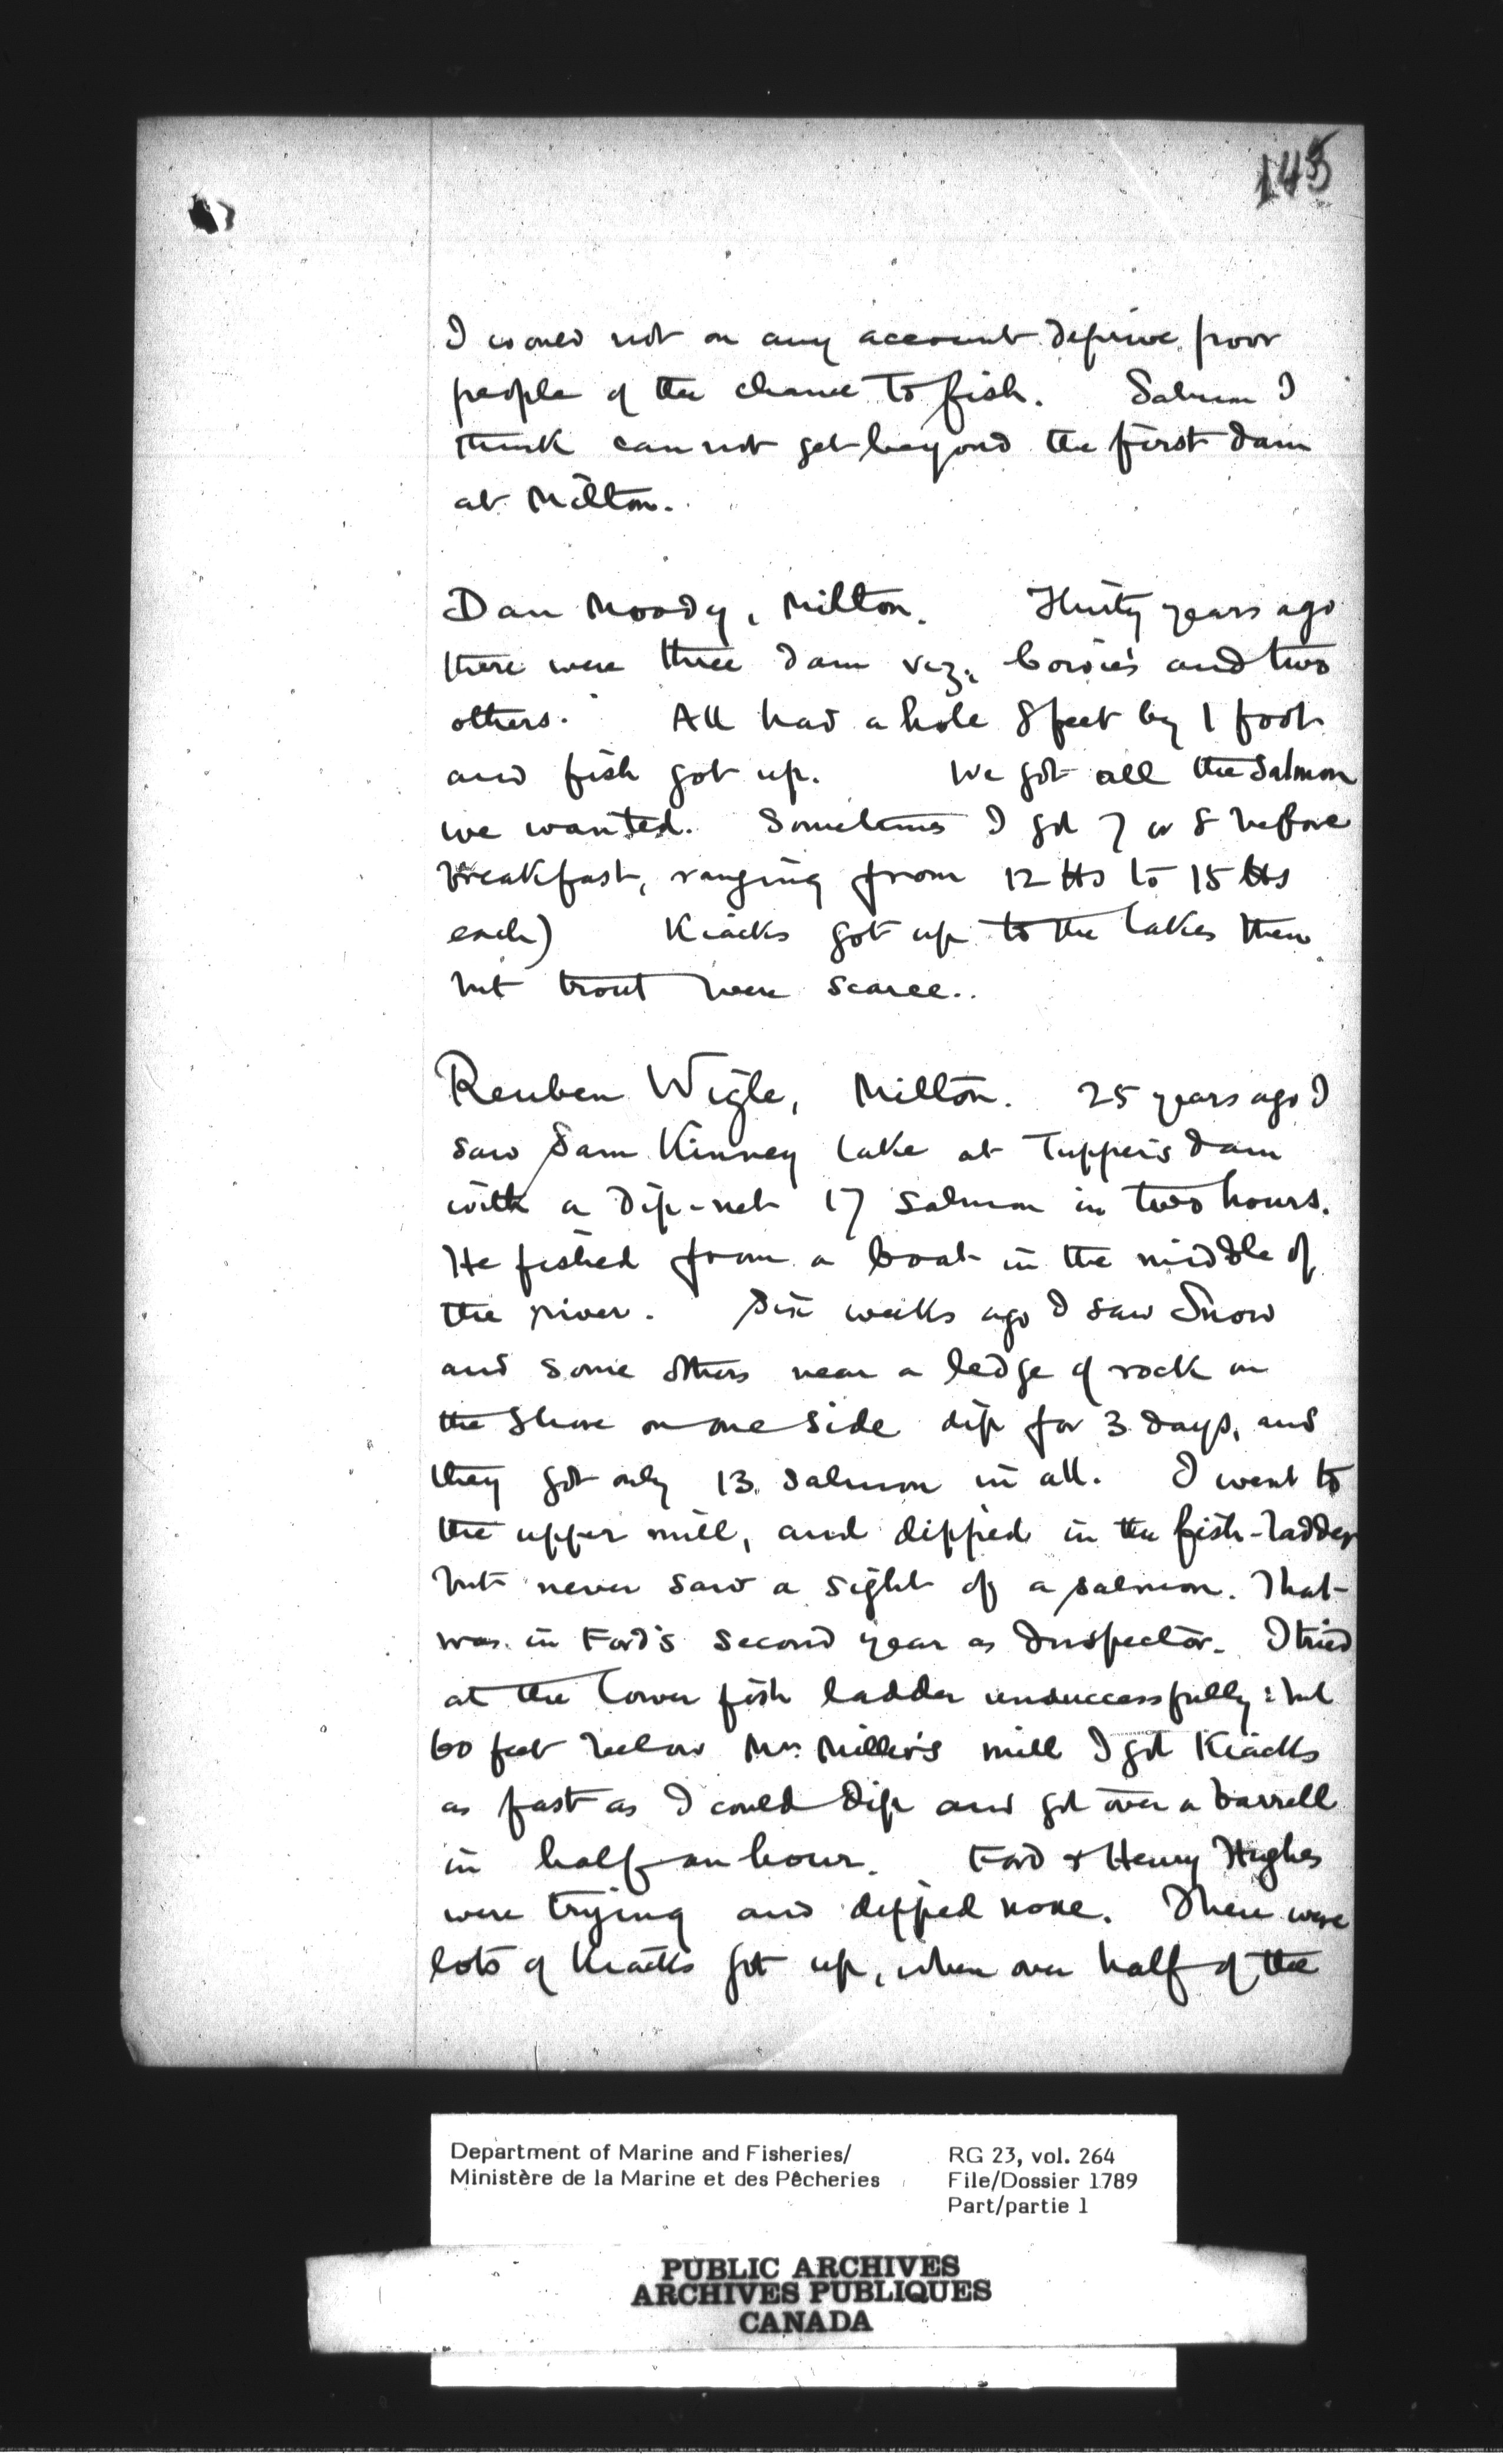 145
I would not on any account deprive poor
people of the chance to fish. Salmon I
think can not get beyond the first dam
at Milton.
Dan Moody, Milton. Thirty years ago
there were three dam viz. Cowie's and two
others. All had a hole 8 feet by 1 foot
and fish got up. We got all the Salmon
we wanted. Sometimes I got 7 or 8 before
breakfast, ranging from 12 lbs to 15 lbs
each) Kiacks got up to the lakes then
but trout were scarce..
Reuben Wigle, Milton. 25 years ago I
saw Sam Kinney take at Tupper's dam
with a dip-net 17 salmon in two hours.
He fished from a boat in the middle of
the river. Six weeks ago I saw Snow
and some others near a ledge of rock on
the shore on one side dip for 3 days, and
they got only 13. salmon in all. I went to
the upper mill, and dipped in the fish-ladder
but never saw a sight of a salmon. That
was in Ford's second year as Inspector. I tried
at the lower fish ladder unsuccessfully: but
60 feet below Mr. Miller's mill I got Kiacks
as fast as I could dip and got over a barrell
in half an hour. Ford & Henry Hughes
were trying and dipped none. There were
lots of Kiacks got up, when over half of the
Department of Marine and Fisheries/
Ministère de la Marine et des Pêcheries
RG 23, vol. 264
File/Dossier 1789
Part/partie 1
PUBLIC ARCHIVES
ARCHIVES PUBLIQUES
CANADA